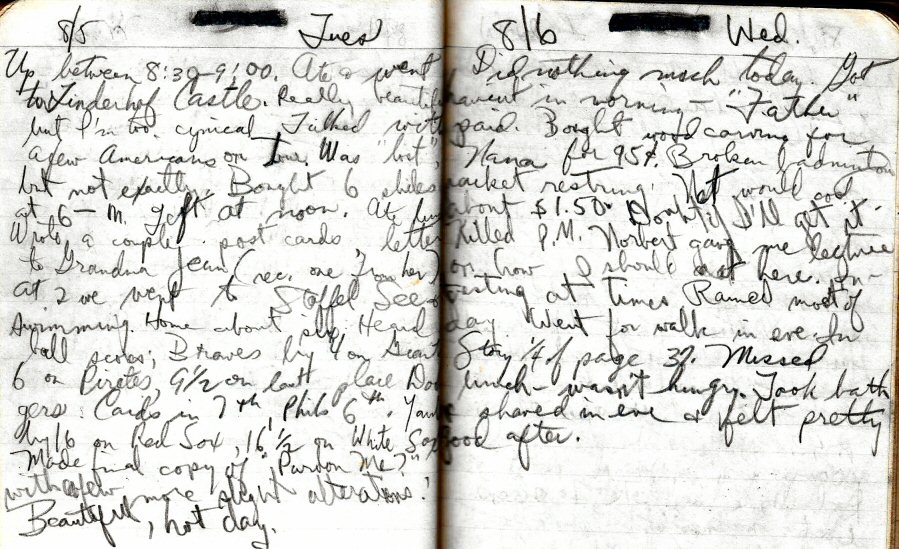 8/5 Tues
Up between 8:30-9:00. Ate & went
to Linderhof Castle. Really beautiful
but I'm too cynical. Talked with
a few Americans on tour. Was "lost",
but not exactly. Bought 6 slides
at 6 - M. Left at noon. Ate lunch
Wrote a couple post cards, letter
to Grandma Jean (rec. one from her)
at 2 we went to Staffel See
swimming. Home about six. Heard
ball scores; Braves by 4 on Giants
6 on Pirates, 9 1/2 on last place Dod
gers. Cards in 7th, Phils 6th. Yanks
by 16 on Red Sox, 16 1/2 on White Sox
Made final copy of "Pardon Me?"
with a few more slight alterations!
Beautiful, hot day.
8/6 Wed.
Did nothing much today. Got
in morning - "Father"
paid. Bought wood carving for
Nana for 95¢. Broken badminton
racket restring. Net would cost
about $1.50. Doubt if I'll get it.
Killed P.M. Norbert gave me lecture
on how I should eat here. In-
at times. Rained most of
day. Went for walk in eve. In
Story 1/4 of page 37. Missed
lunch - wasn't hungry. Took bath
& shaved in eve & felt pretty
good after.